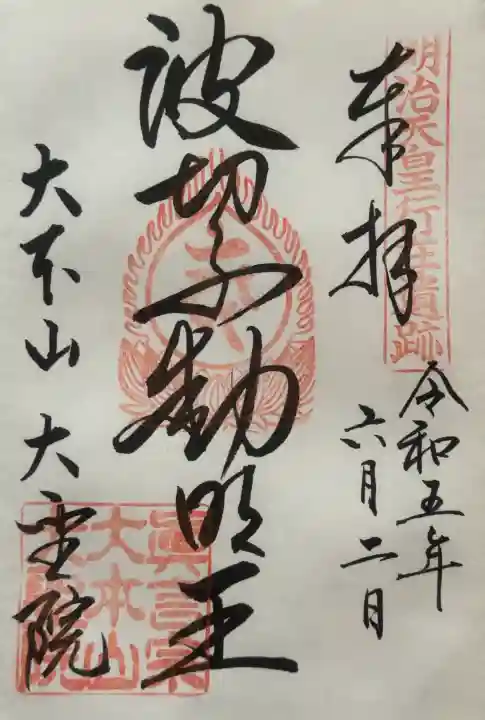 明治天皇行在遺跡
奉拝
令和五年
六月二日
波切不動明王
大本山 大聖院
眞言宗
大本山
大聖院